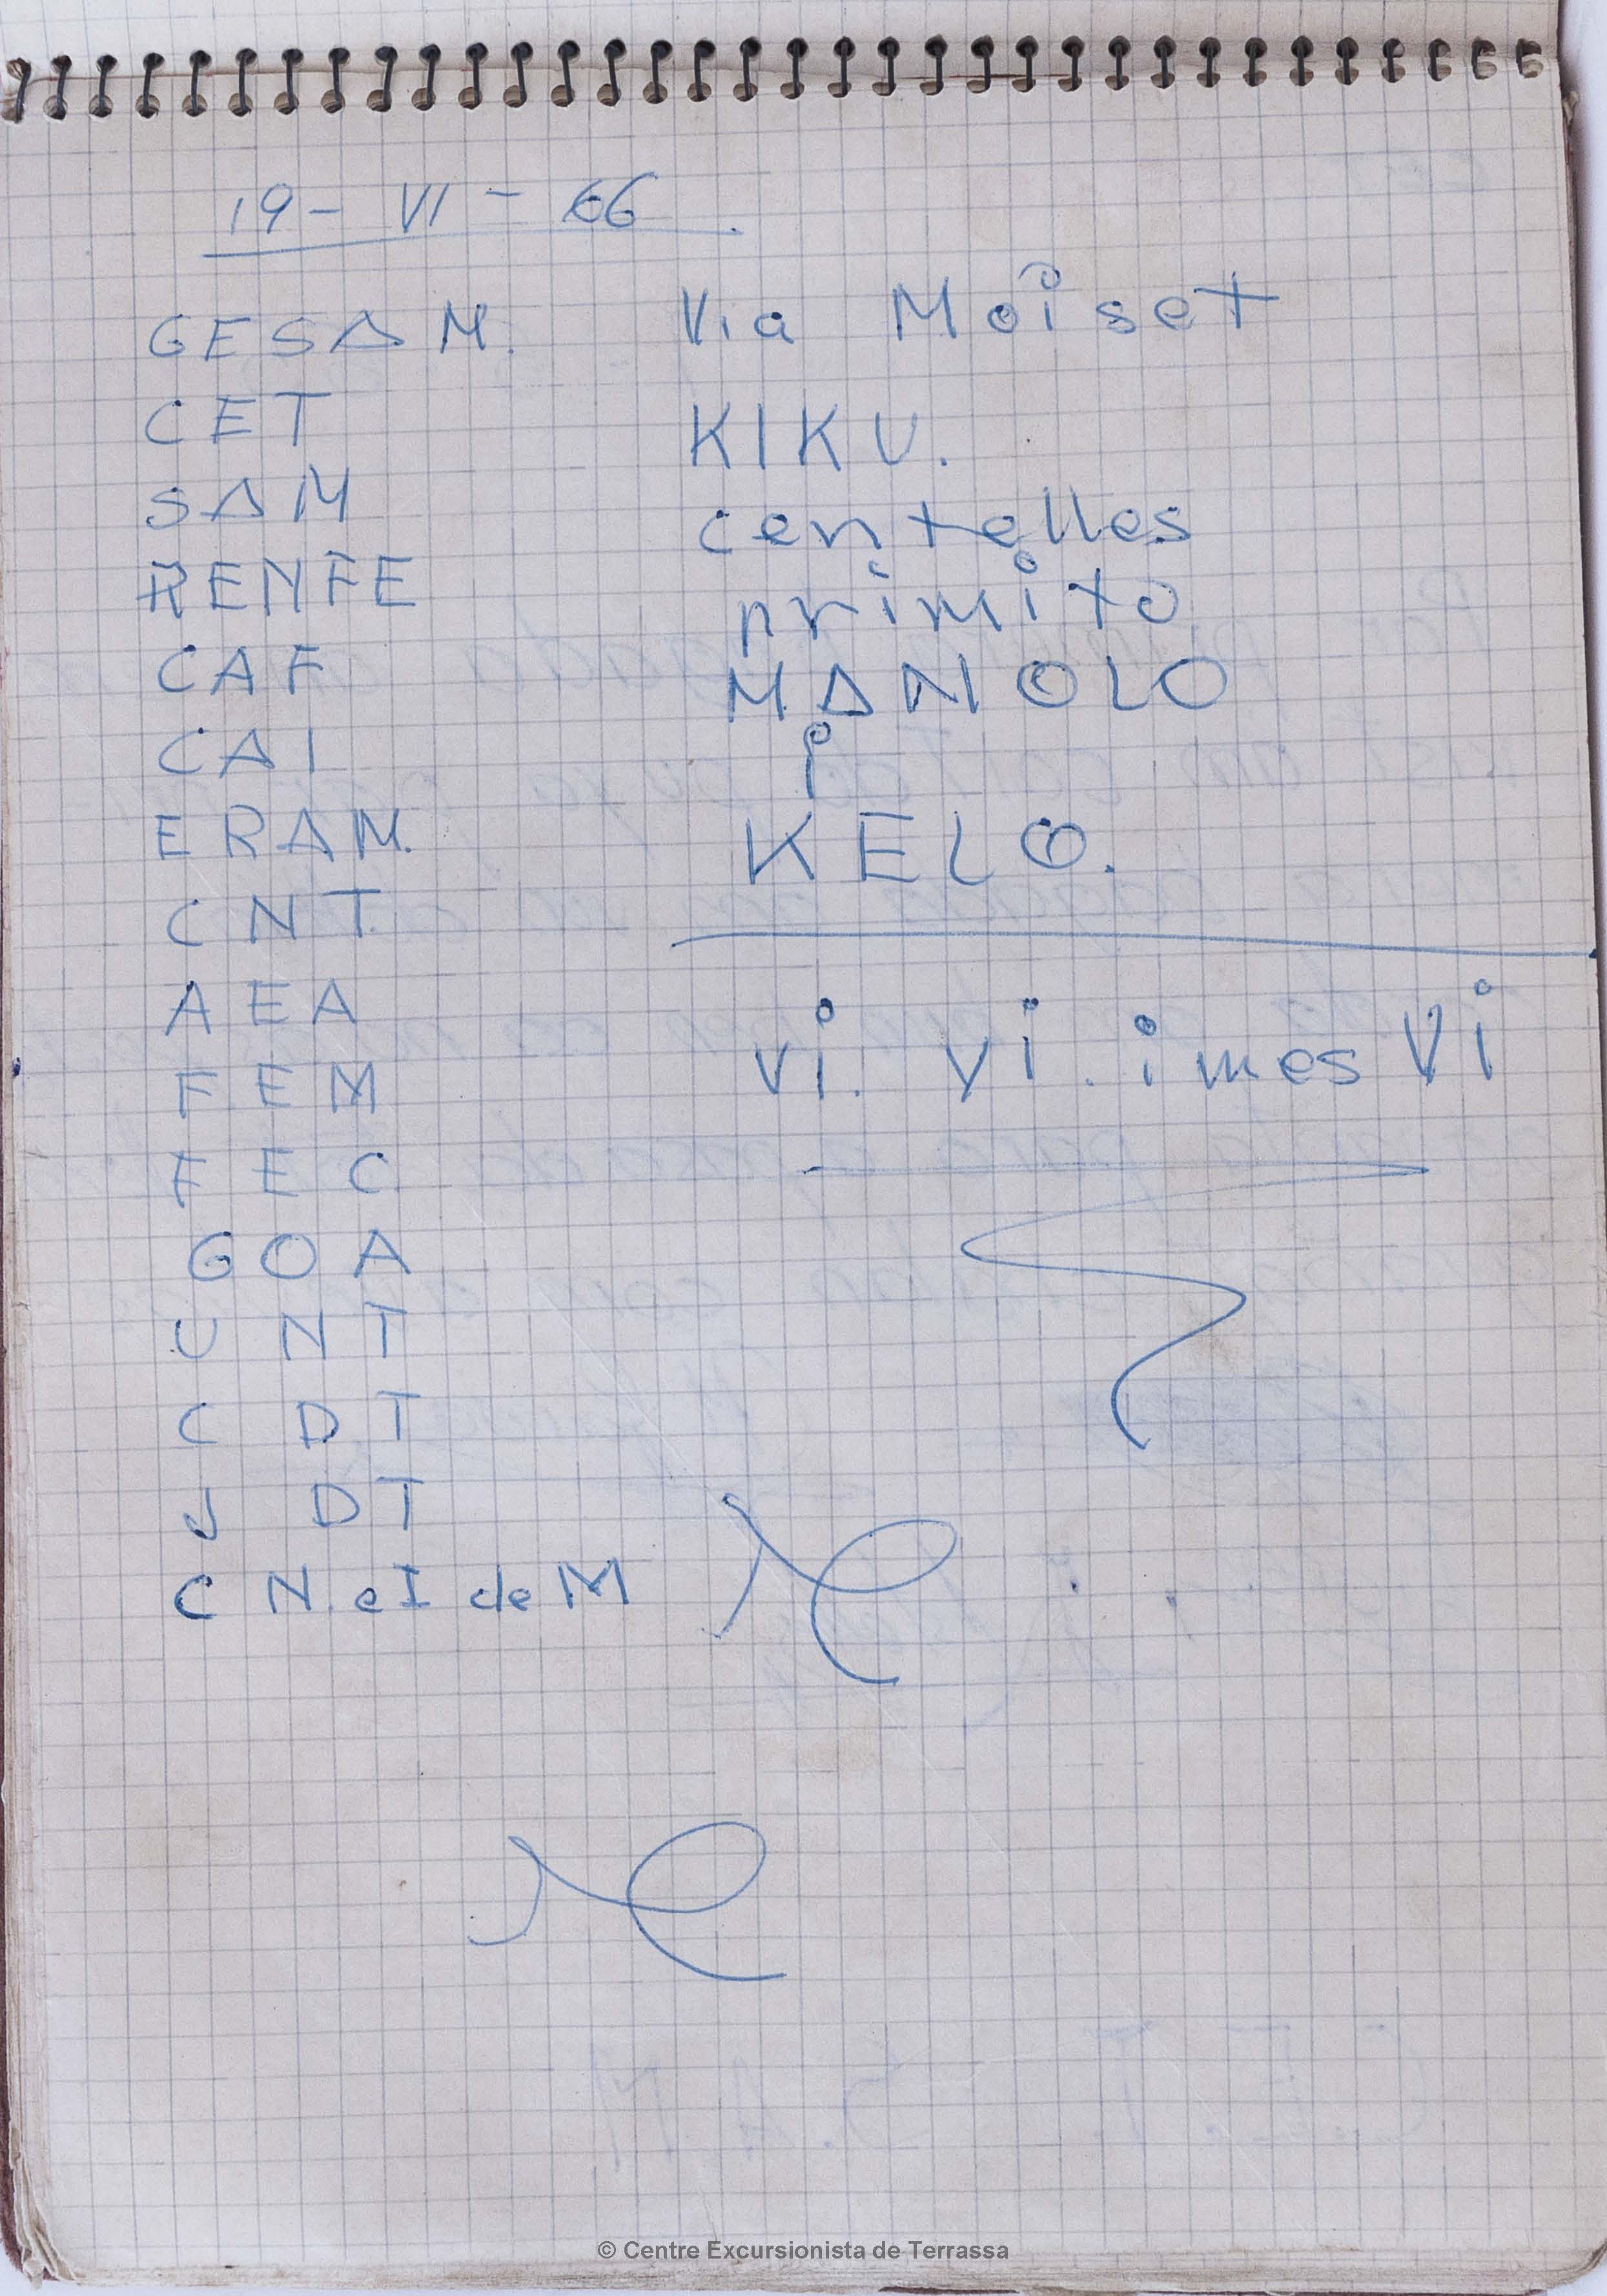 19 - VI - 66.
GESAM.
CET
SAM
RENFE
CAF
CAI
ERAM.
CNT
AEA
FEM
FEC
GOA
UNT
CDT
JDT
C N. e I de M
Via Moiset
KIKU.
centelles
primito
MANOLO
i
KELO.
vi. vi. i mes Vi
© Centre Excursionista de Terrassa